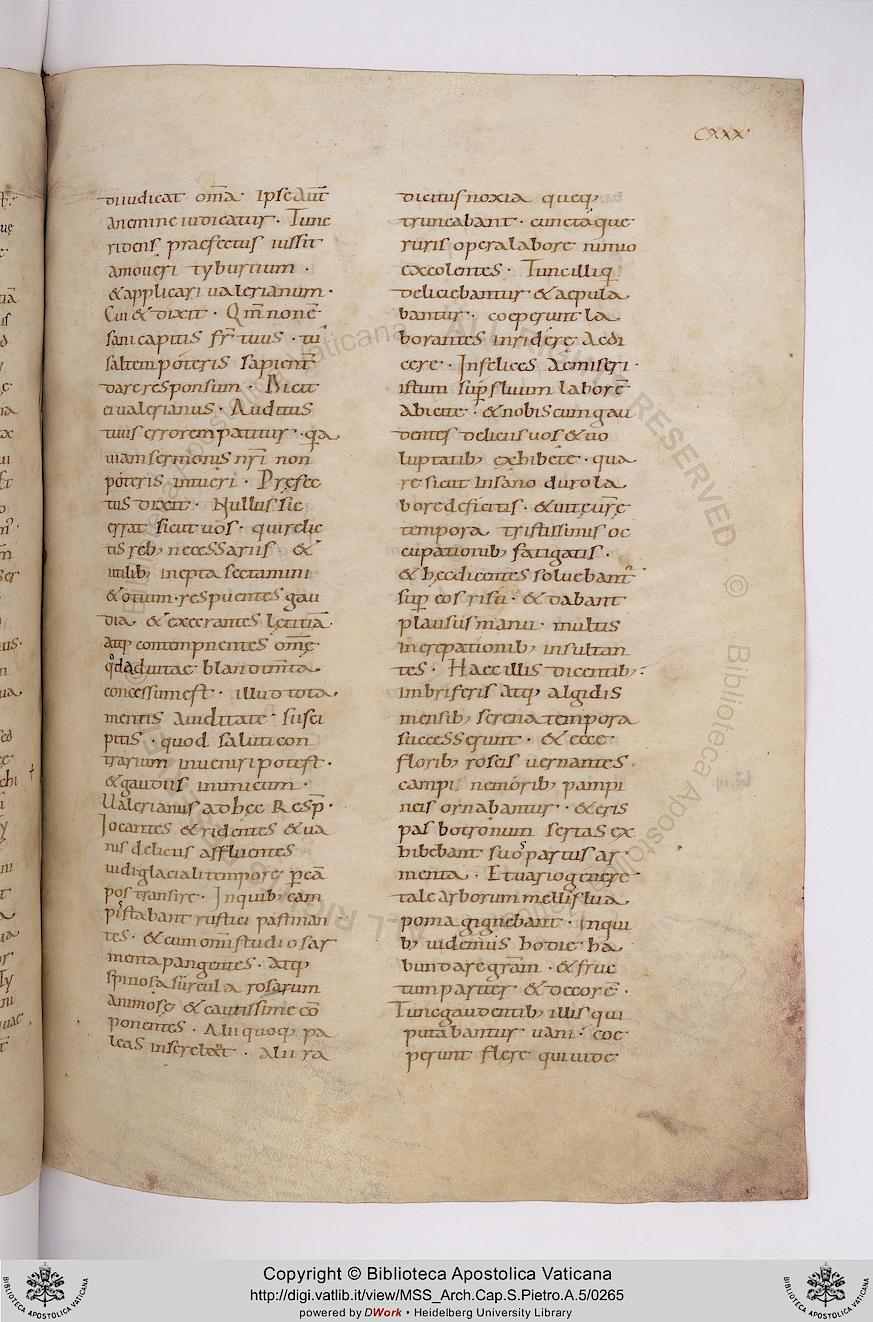 CXXX
diiudicat om̅a· Ipse aut̅
anemine iudicatur· Tunc
ridens praefectus iussit
amoueri tyburtium ·
&applicari ualerianum·
Cui & dixit· Qm̅ non e̅
sani capitis fr̅ tuus· tu
saltem poteris sapient̅
dare responsum· Dicit
ei ualerianus· Auditus
tuus errorem patitur· qa
uiam sermonis nr̅i non
poteris intueri· Prefec
tus dixit· Nullus sic
errat sicut uos· qui relic
tis reb; necessariis &
utilib; inepta sectamini
&otium·respuentes gau
dia & execrantes lętitia̅·
atq; contempnentes om̅e
qd ad uitae blandim̅ta
concessum est· illud tota
mentis auiditate susci
pitis· quod saluti con
trarium inueniri potest·
&gaudiis inimicum·
Ualerianus ad hęc Resp̅·
Iocantes & ridentes & ua
riis deliciis affluentes
uidi glaciali tempore p ca̅
pos transire· Inquib; cam
pis stabant rustici pastinan
tes· & cum om̅i studio sar
menta pangentes· atq;
spinosa surcula rosarum
animose & cautissime co̅
ponentes· Alii quoq; pa
leas inserebant· alii ra
dicitus noxia queq;
truncabant· cunctáque
ruris opera labore nimio
excolentes· Tunc illi q
deliciebantur & aepula
bantur· coeperunt la
borantes inridere ac di
cere· Infelices ac miseri·
istum sup̅fluum labore̅
abicite· & nobiscum gau
dentes deliciis uos & uo
luptatib; exhibete· qua
re sicut insano duro la
bore deficitis· & uitę ur̅ę
tempora tristissimis oc
cupationib; fatigatis·
& hęc dicentes soluebant̅
sup̅ eos risu· & dabant
plausus manu· multis
increpationib; insultan
tes· Haec illis dicentib;
imbriferis atq; algidis
mensib; serena tempora
successerunt· & ecce
florib; roseis uernantes·
campi nemorib; pampi
neis ornabantur· & cris
pas botronum sertas ex
hibebant suos partus ar
menta· Et uario genere
tale arborum melliflua
poma gignebant· Inqui
b; uidemus hodie ha
bundare gra̅m· & fruc
tum pariter & decore̅·
Tunc gaudentib; illis qui
putabantur uani· coe
perunt flere qui uide
Copyright © Biblioteca Apostolica Vaticana
http://digi.vatlib.it/view/MSS_Arch.Cap.S.Pietro.A.5/0265
powered by DWork • Heidelberg University Library